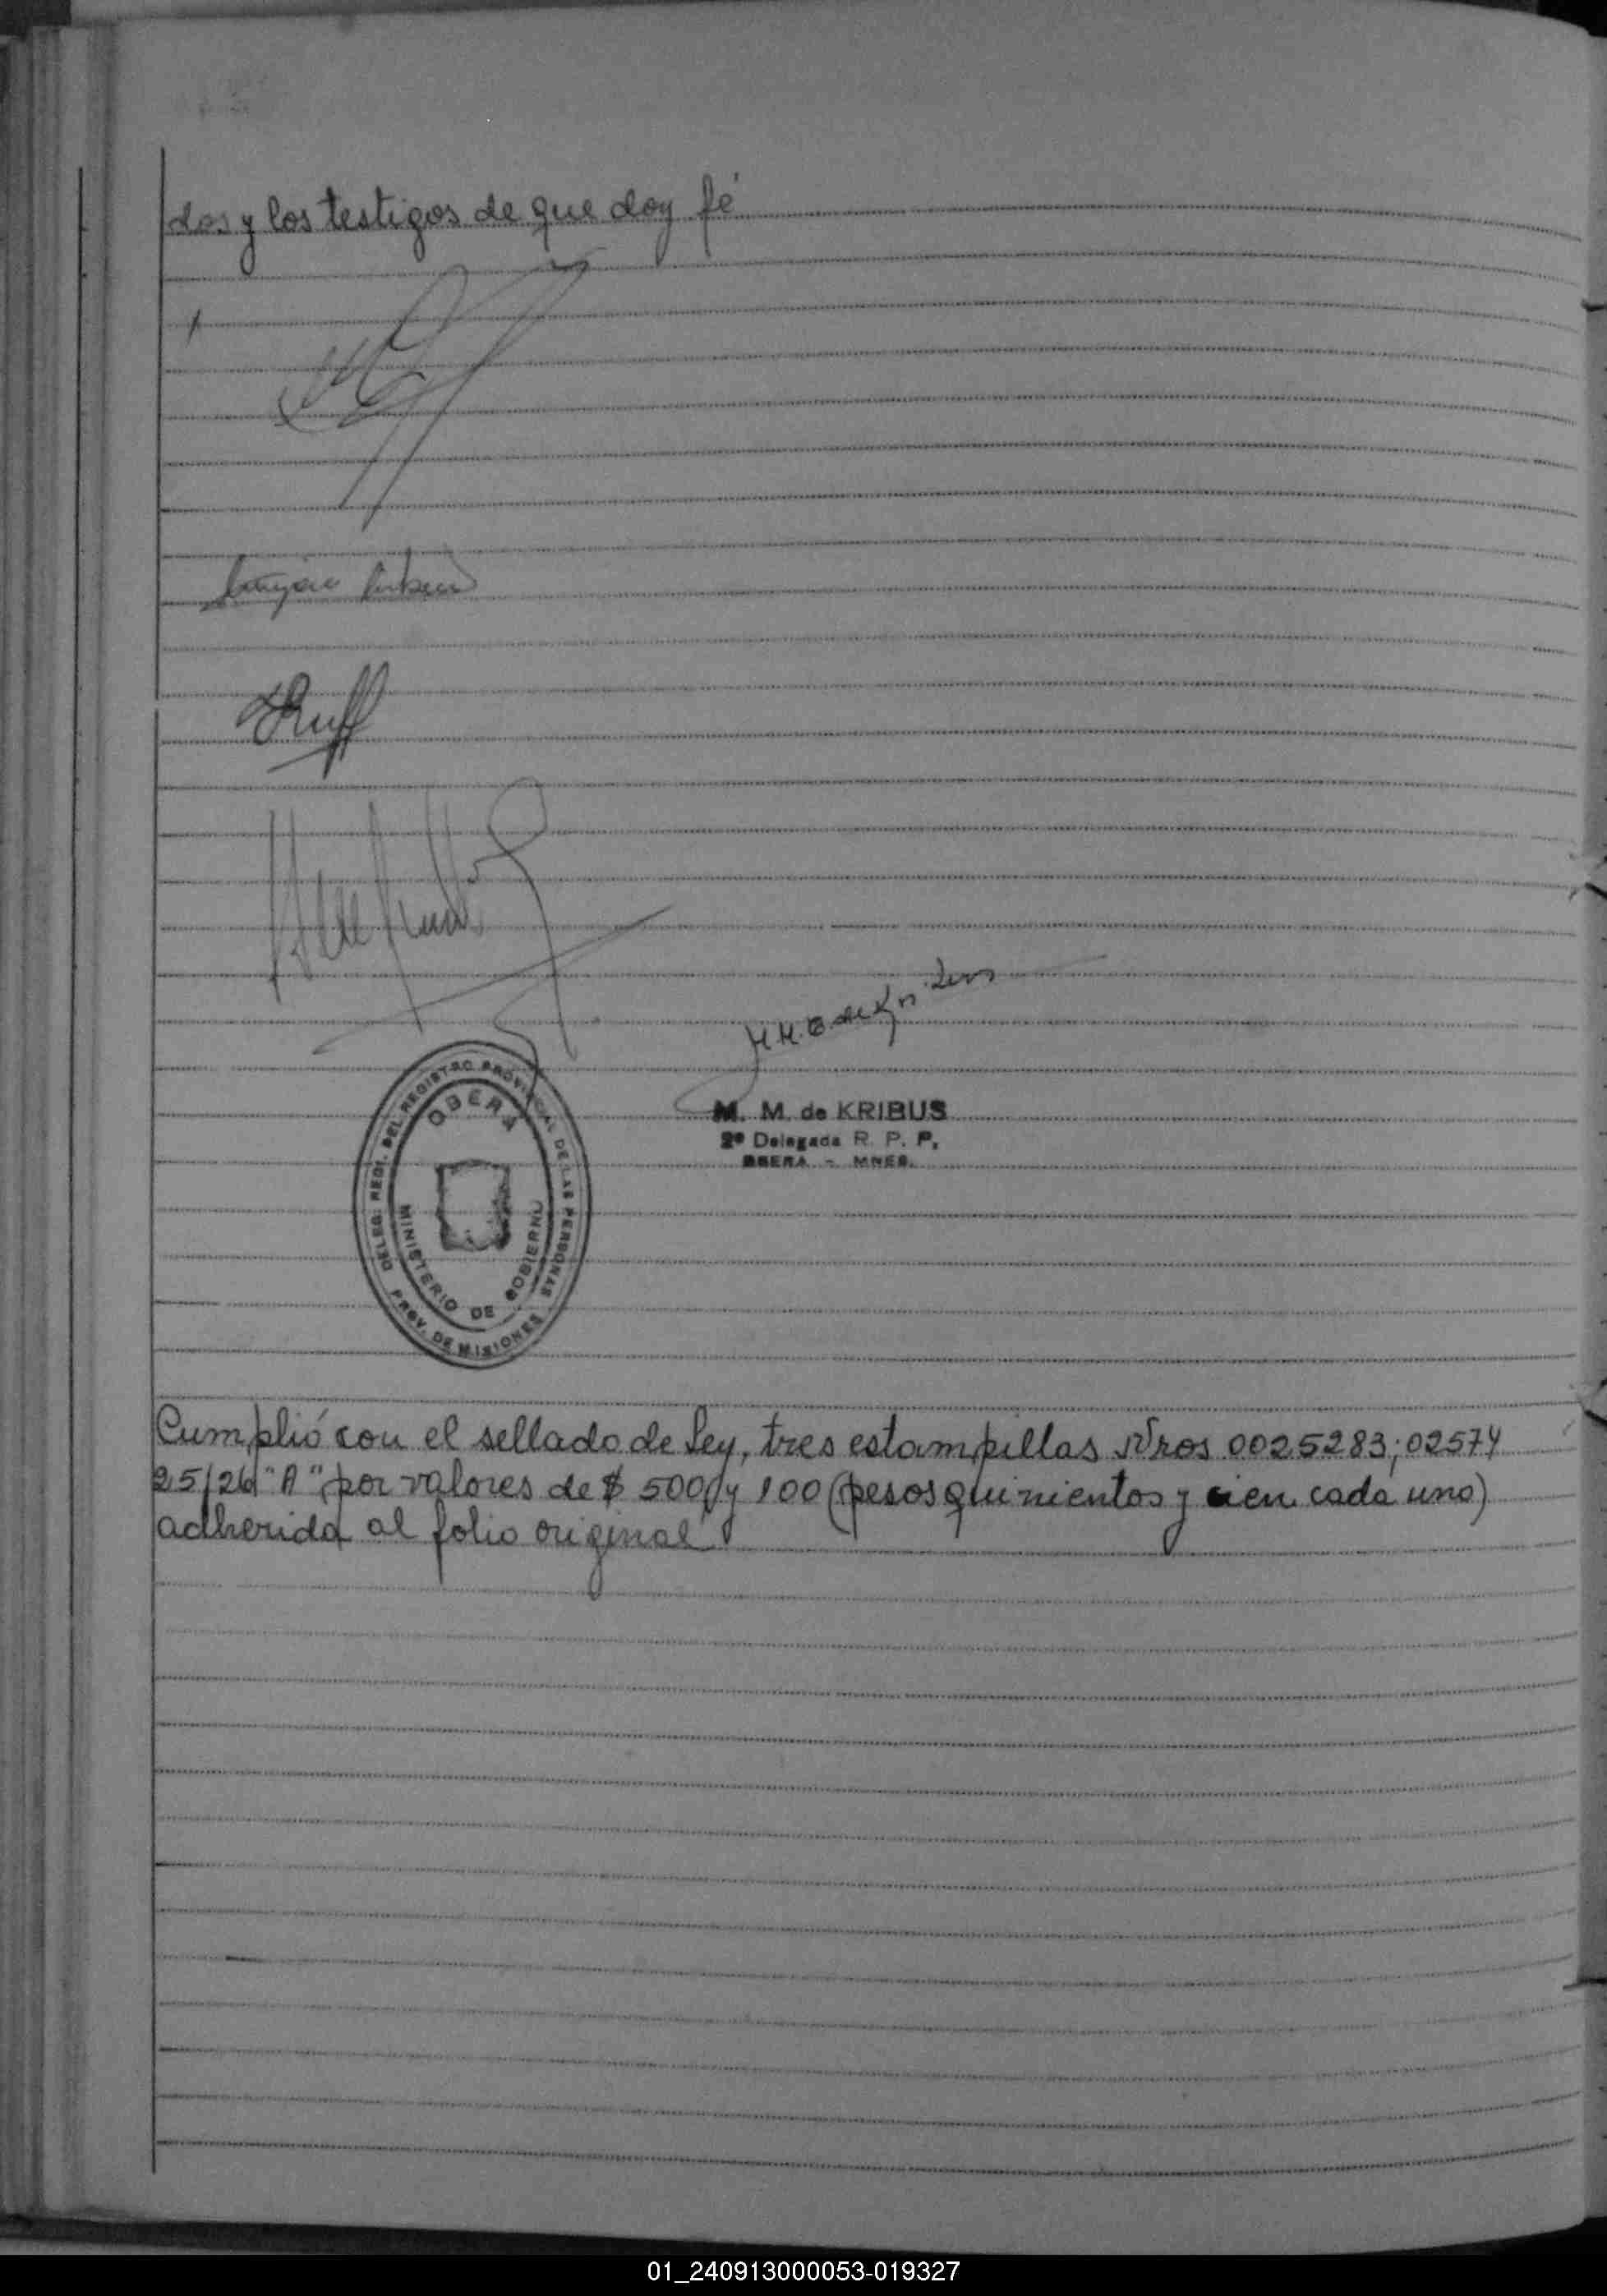 dos y los testigos de que doy fé
Ruff
M. M. de KRIBUS
2º Delegada R. P. P.
OBERA - MNES.
DELEG. REGI. DEL REGISTRO PROVINCIAL DE LAS PERSONAS
OBERA
MINISTERIO DE GOBIERNO
PROV. DE MISIONES
Cumplió con el sellado de Ley, tres estampillas Nros 0025283; 02574
25/26 "A", por valores de $ 500 y 100 (pesos quinientos y cien cada uno)
adherida al folio original
01_240913000053-019327